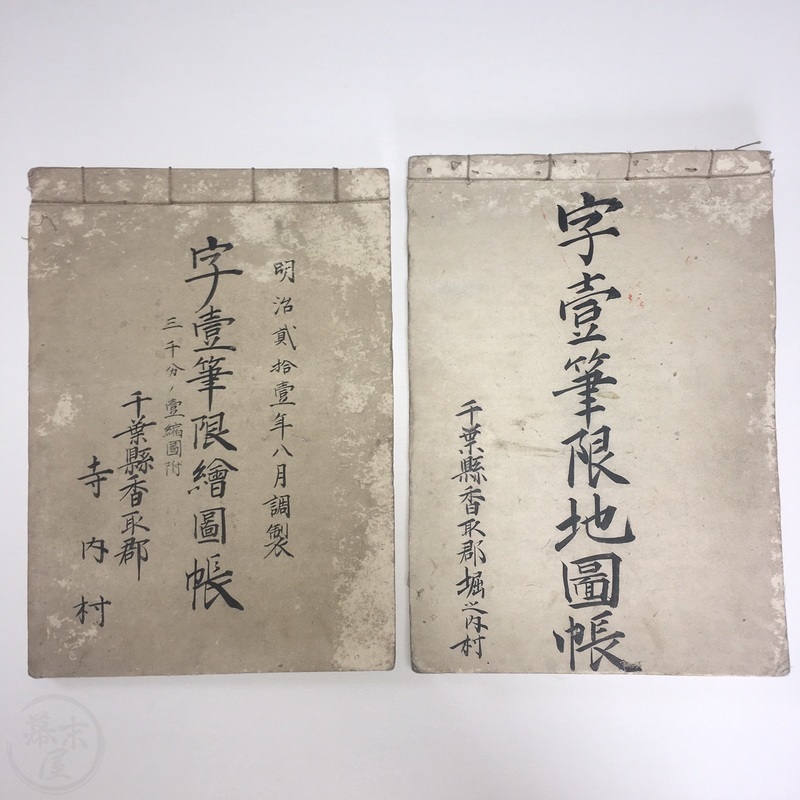 明治貳拾壹年八月調製
字壹筆限繪圖帳
三千分ノ壹縮圖附
千葉縣香取郡
寺内村
字壹筆限地圖帳
千葉縣香取郡堀之内村
幕末屋